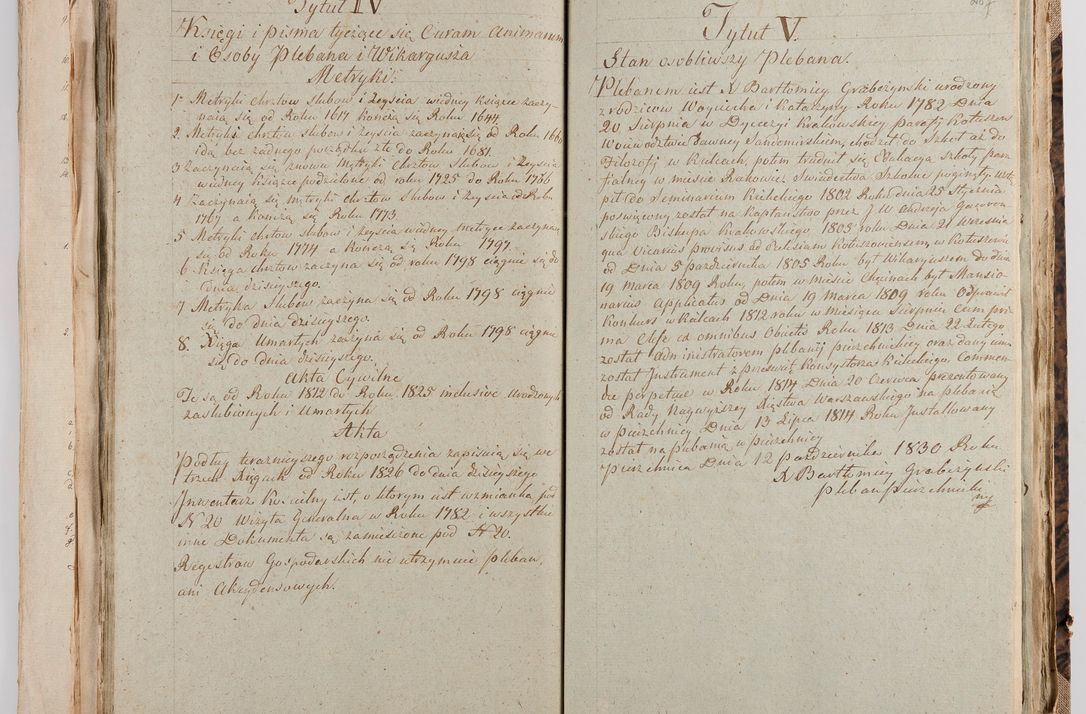 Tytuł IV
Księgi i pisma tyczące się Curam Animarum
i Osoby Plebana i Wikaryusza
Metryki.
1. Metryki chrztow slubow i zeyscia w iedney książce zaczy-
naią się od Roku 1617 kończą się Roku 1644.
2. Metryki chrztu slubow i zeyscia zaczynaią się od Roku 1660
idą bez żadnego porządku zte do Roku 1681.
3 Zaczynaią się znowu Metryki Chrztow Slubow i Zeyscia
w iedney książce podzielone od roku 1725 do Roku 1766
4 zaczynaią się metryki chrztow Slubow i Zeyscia od Roku
1767 a kończą się Roku 1773.
5 Metryki chrztow slubow i zeyscia w iedney metryce zaczyna
się od Roku 1774 a kończą się Roku 1797.
6 Księga chrztow zaczyna się od roku 1798 ciągnie się do
dnia dzisieyszego.
7 Metryka Slubow zaczyna się od Roku 1798 ciągnie
się do dnia dzisieyszego.
8. Xięga Umarłych zaczyna się od Roku 1798 ciągnie
się do dnia dzisieyszego.
Akta Cywilne
Te są od Roku 1812 do Roku 1825 inclusive Urodzonych
zaslubionych i Umarłych
Akta
Podług teraznieyszego rozporządzenia zapisuią się we
trzech Xięgach od Roku 1826 do dnia dzisieyszego
Inwentarz Koscielny iest, o ktorym iest wzmianka pod
N 20 Wizyta Generalna w Roku 1782 i wszystkie
inne Dokumenta są zamieszczone pod N 20.
Regestrow Gospodarskich nie utrzymuie pleban,
ani Akcydensowych.
Tytuł V.
Stan osobliwszy Plebana.
Plebanem iest X Bartłomiey Grabczynski urodzony
z rodzicow Woyciecha i Katarzyny Roku 1782 Dnia
20 Sierpnia w Dyecezyi Krakowskiey parafij Kotuszow
Woiewodztwie Dawney Sandomirskim, chodził do Szkoł aż do
Filozofij w Kielcach, potem trudnił się Edukacyą szkoły para
fialney w miescie Rakowie Swiadectwa Szkolne poginęły. wstą
pił do Seminarium Kieleckiego 1802 Roku dnia 25 Stycznia
poswięcony został na kapłanstwo przez J W Andrzeja Gawron-
skiego Biskupa Krakowskiego 1805 roku Dnia 21 Wrzesnia
qua Vicarius provisus ad Eclesiam Kotuszoviensem, w Kotuszowie
od Dnia 5 pazdziernika 1805 Roku był Wikaryuszem do dnia
19 marca 1809 Roku, potem w miescie Chęcinach był Mansio
narius Applicatus od Dnia 19 Marca 1809 roku Odprawił
Konkurs w Kielcach 1812 roku w miesiącu Sierpniu Cum pri
ma Clase ex omnibus Obiectis Roku 1813 Dnia 22 Lutego
został Administratorem plebanij pierzchnickiey oraz dany mu
został Instrument z przeswiet Konsystorza Kieleckiego Commen
dae perpetuae w Roku 1814 Dnia 20 Czerwca prezentowany
od Rady Naywyższey Xięstwa Warszawskiego na plebanią
w pierzchnicy Dnia 13 Lipca 1814 Roku Jnstallowany
został na plebanią w pierzchnicy
Pierzchnica Dnia 12 pazdziernika 1830 Roku
X Bartłomiey Grabczynski
pleban pierzchnicki
mp